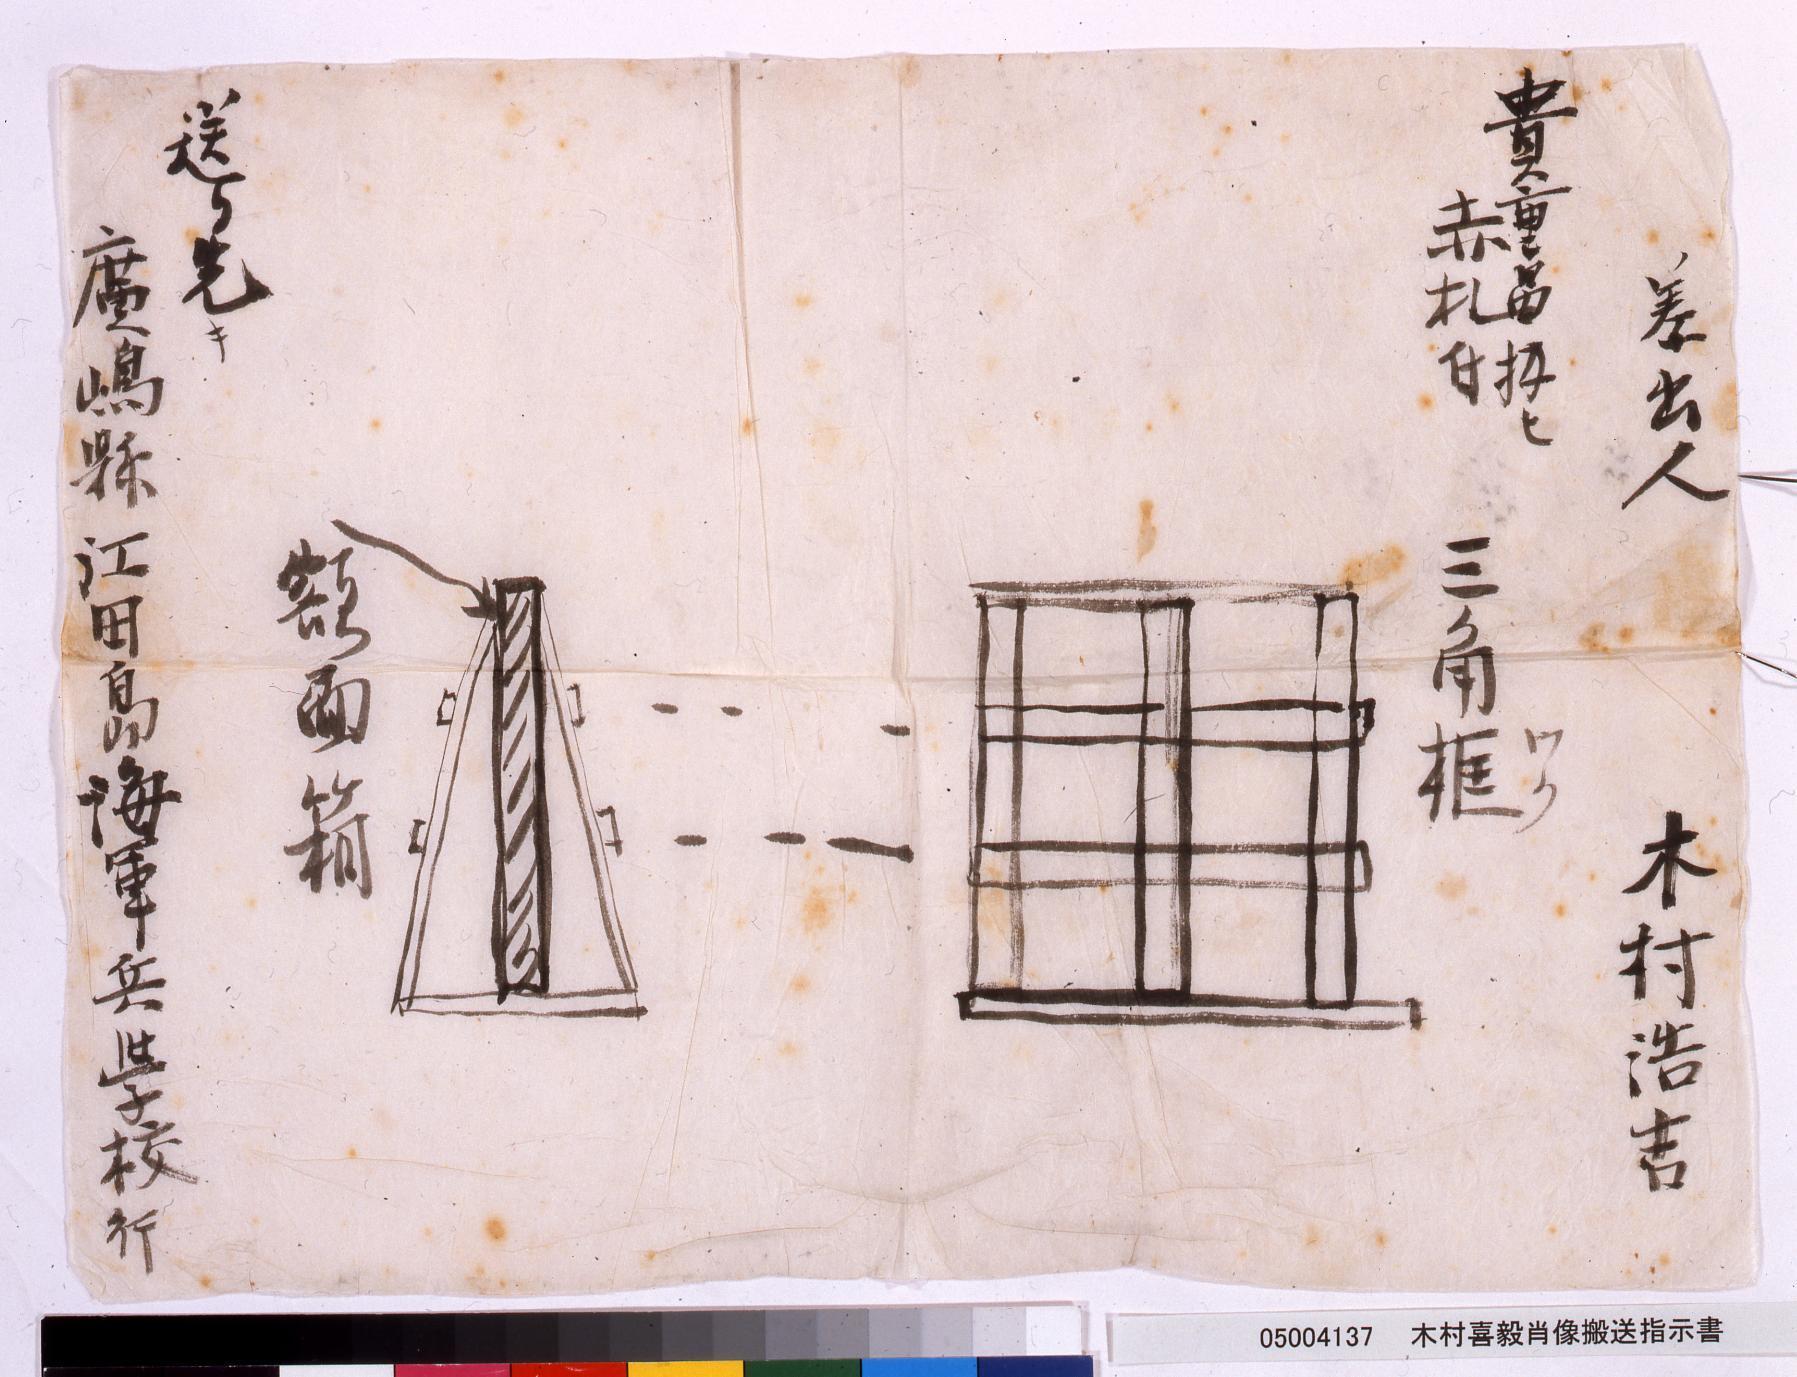 差出人 木村浩吉
貴重品扱ヒ
赤札付
三角框
ワク
額面箱
送り先キ
廣嶋縣江田島海軍兵学校行
05004137 木村喜毅肖像搬送指示書